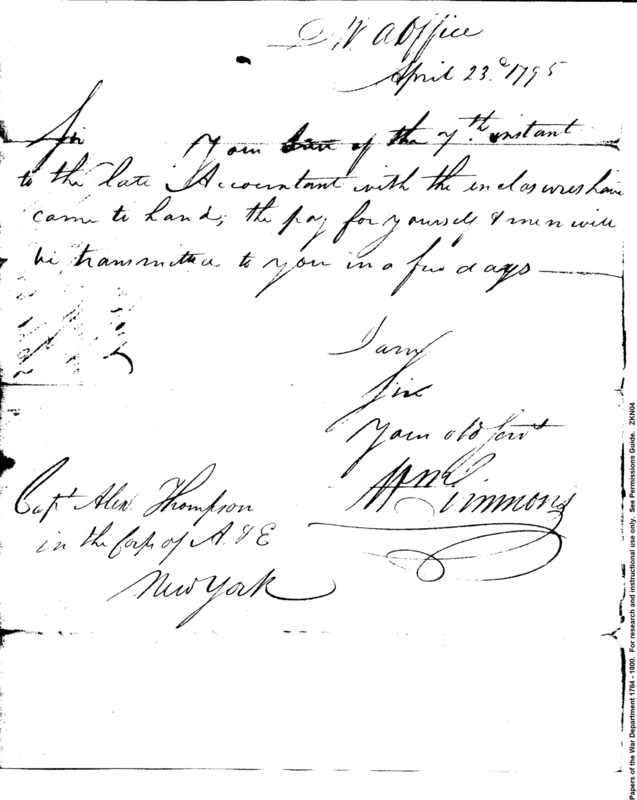 D. W. A Office
April 23.d 1795
Sir Your of the 7th instant
to the late Accountant with the enclosures have
came to hand; the pay for yourself & men will
be transmitted to you in a few days
I am
Sir
Your obd Servt
Wm Simmons
Capt Alexr Thompson
in the Corps of A. & E
New York
Papers of the War Department 1784 - 1800. For research and instructional use only. See Permissions Guide. ZKN04